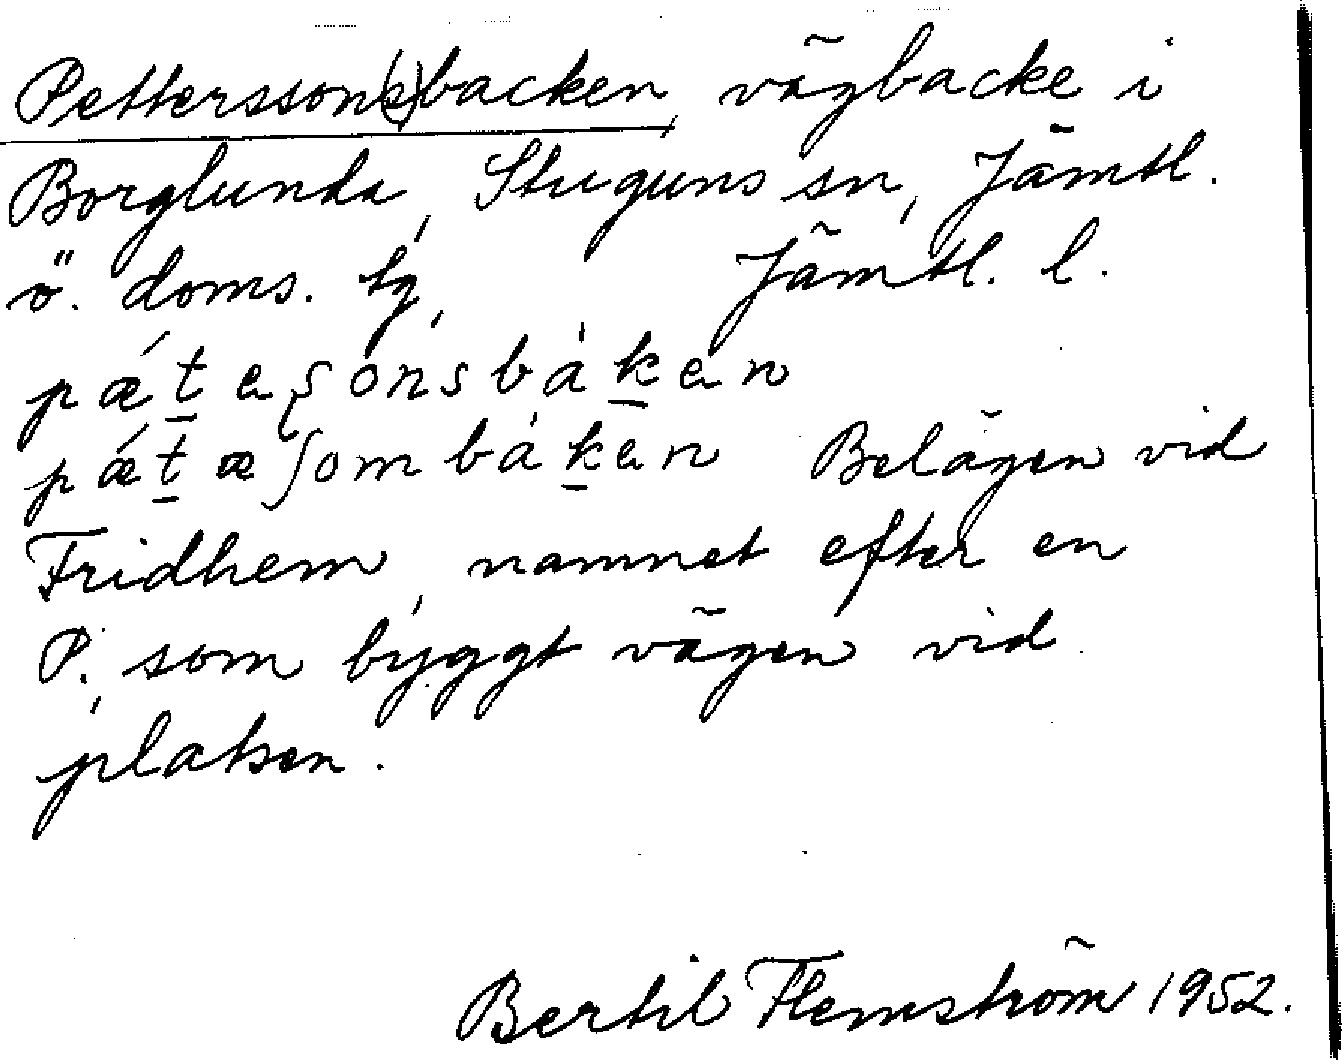 Pettersson(s)backen, vägbacke i
Borglunda, Stuguns sn, Jämtl.
ö. doms. tg, Jämtl. l.
pǽt̲eʂonsbàk̲en
pǽt̲æʃombàk̲en Belägen vid
Fridhem, namnet efter en
P., som byggt vägen vid
platsen.
Bertil Flemström 1952.